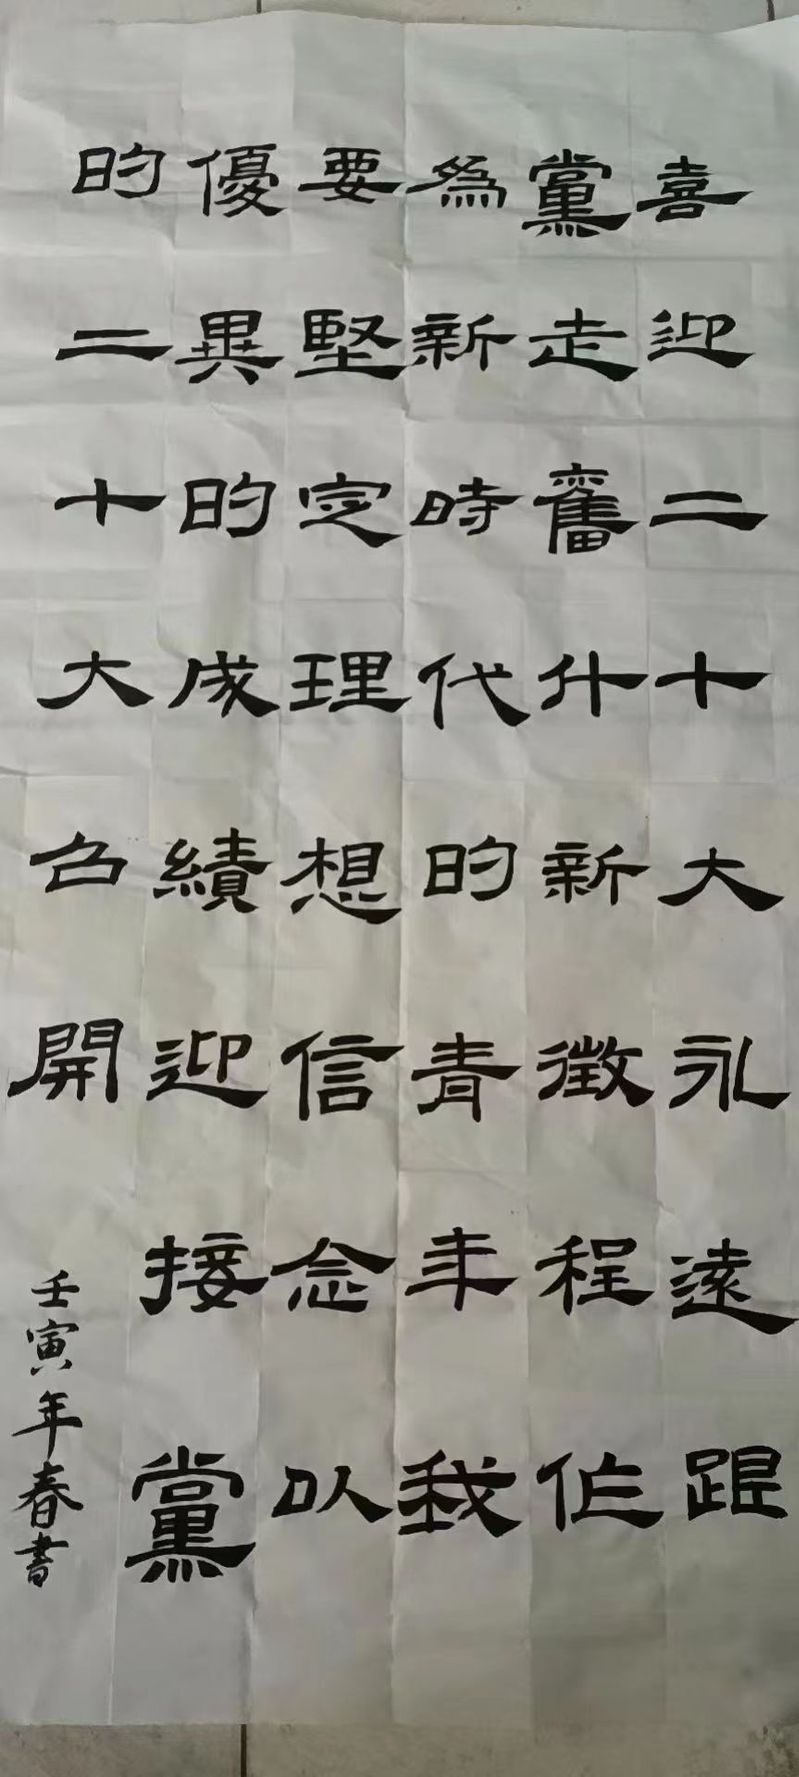 喜迎二十大永遠跟
黨走奮什新徵程作
爲新時代的青年我
要堅定理想信念以
優異的成績迎接黨
的二十大召開
壬寅年春書